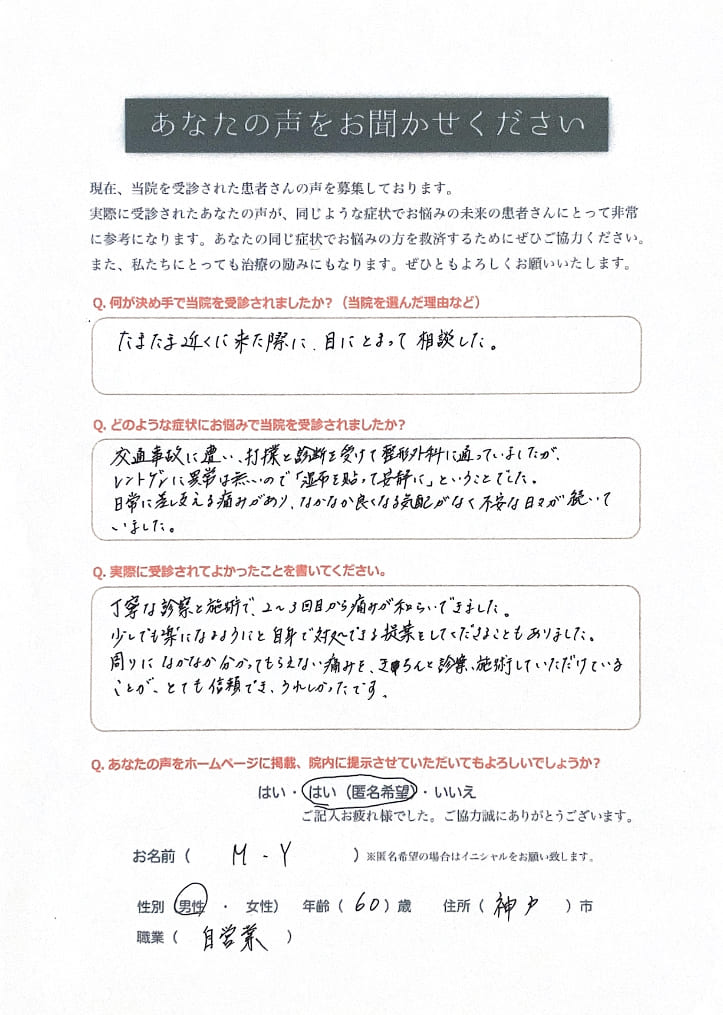 あなたの声をお聞かせください
現在、当院を受診された患者さんの声を募集しております。
実際に受診されたあなたの声が、同じような症状でお悩みの未来の患者さんにとって非常
に参考になります。あなたの同じ症状でお悩みの方を救済するためにぜひご協力ください。
また、私たちにとっても治療の励みにもなります。ぜひともよろしくお願いいたします。
Q. 何が決め手で当院を受診されましたか？（当院を選んだ理由など）
たまたま近くに来た際に、目にとまって相談した。
Q. どのような症状にお悩みで当院を受診されましたか？
交通事故に遭い、打撲と診断を受けて整形外科に通っていましたが、
レントゲンに異常は無いので「湿布を貼って安静に」ということでした。
日常に差し支える痛みがあり、なかなか良くなる気配がなく不安な日々が続いて
いました。
Q. 実際に受診されてよかったことを書いてください。
丁寧な診察と施術で、2〜3回目から痛みが和らいできました。
少しでも楽になるようにと自身で対処できる提案をしてくださることもありました。
周りになかなか分かってもらえない痛みを、きちんと診察、施術していただけている
ことが、とても信頼でき、うれしかったです。
Q. あなたの声をホームページに掲載、院内に提示させていただいてもよろしいでしょうか？
はい・はい（匿名希望）・いいえ
ご記入お疲れ様でした。ご協力誠にありがとうございます。
お名前（ M・Y ）※匿名希望の場合はイニシャルをお願い致します。
性別（男性 ・ 女性） 年齢（ 60 ）歳 住所（ 神戸 ）市
職業（ 自営業 ）